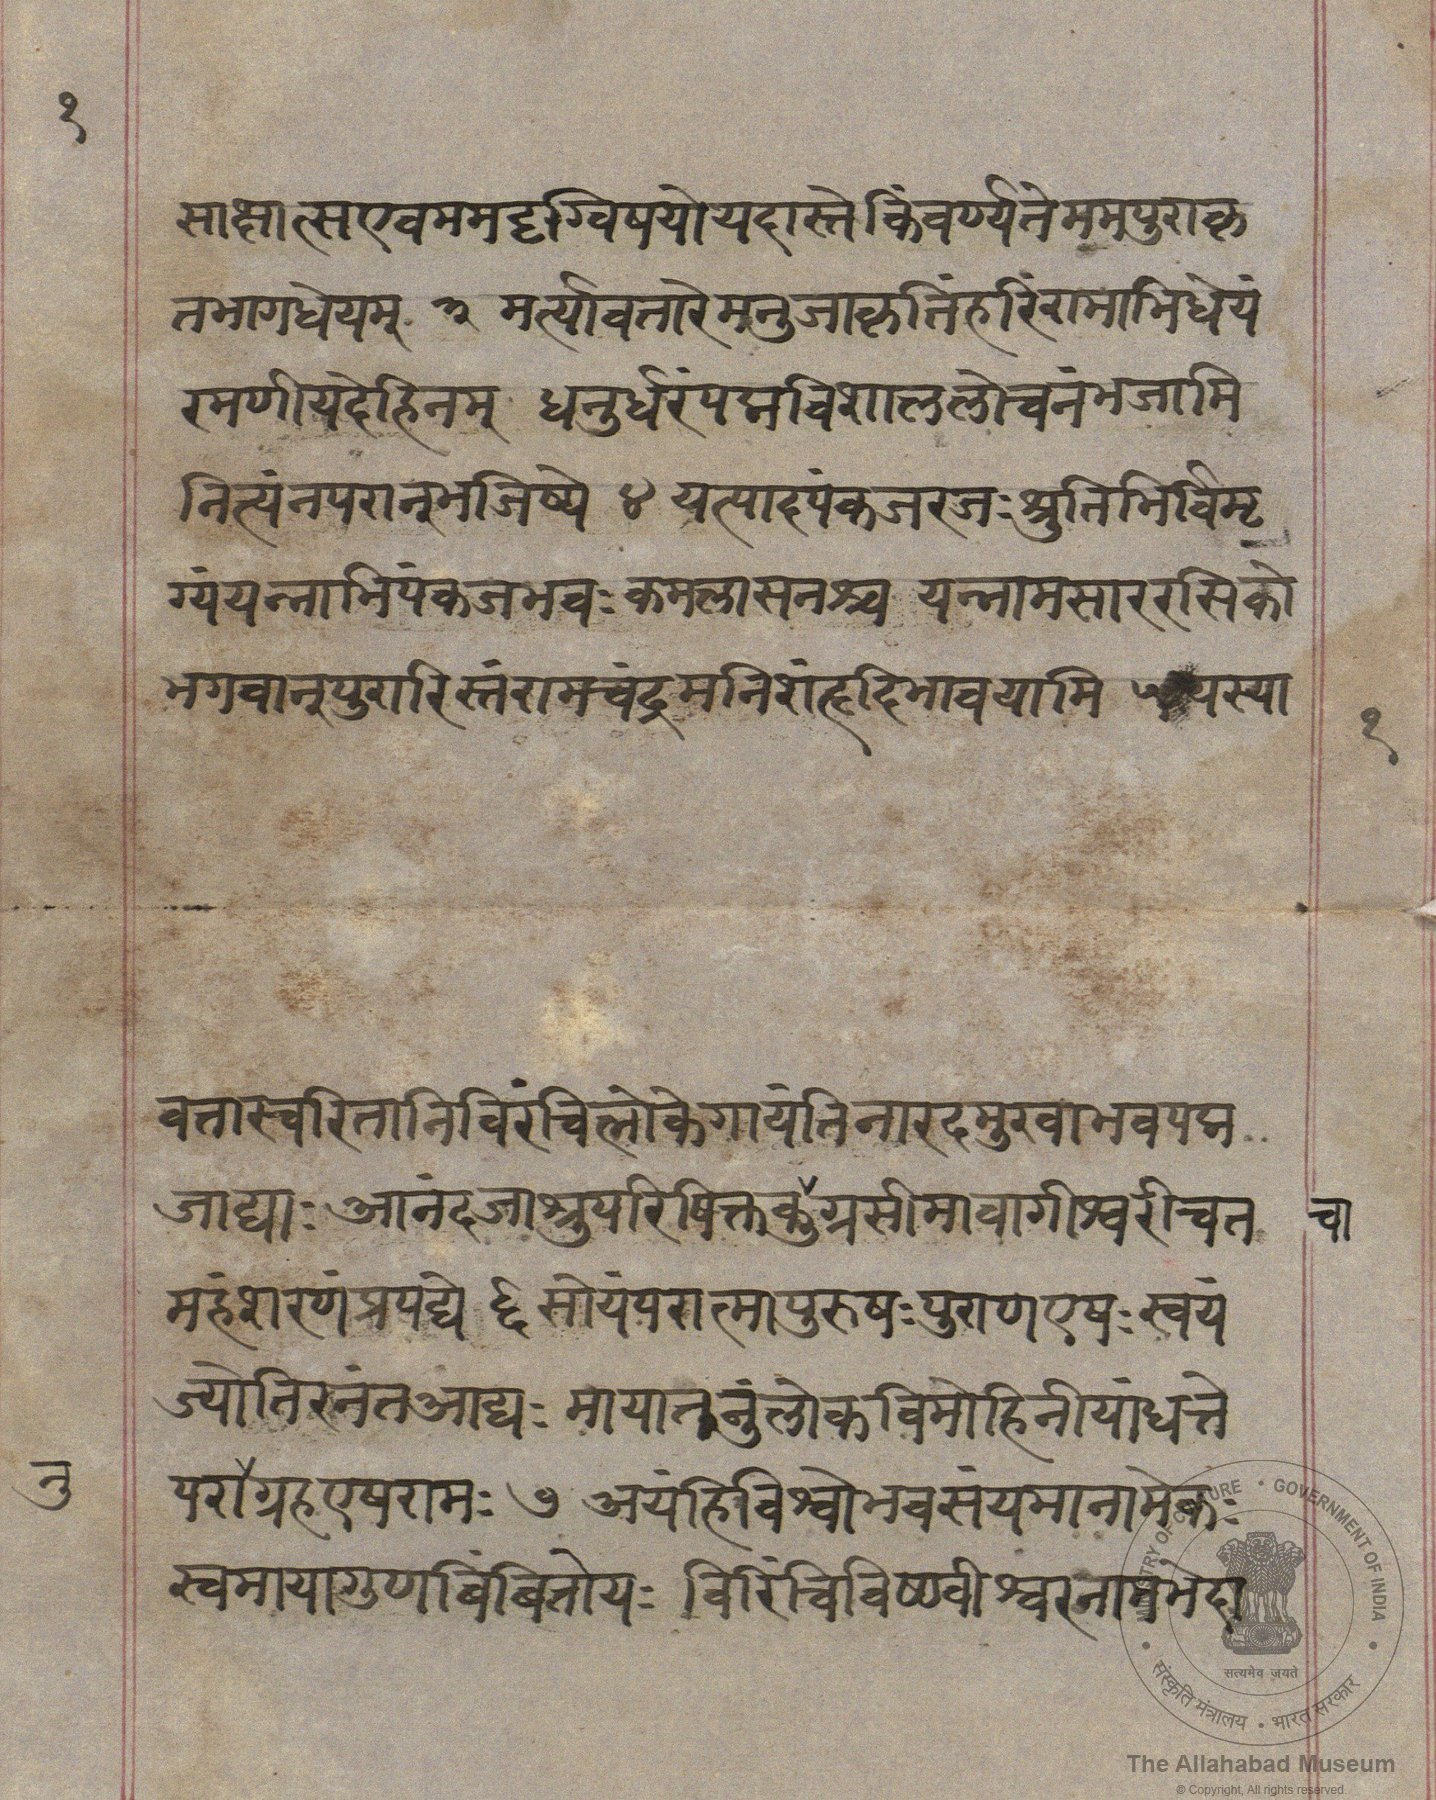 १
साक्षात्सएवममदृग्विषयोयदास्तेकिंवर्ण्यतेममपुराकृ
तभागधेयम् ३ मर्त्यावतारेमनुजाकृतिंहरिंरामाभिधेयं
रमणीयदेहिनम् धनुर्धरंपद्मविशाललोचनंभजामि
नित्यंनपरान्भजिष्ये ४ यत्पादपंकजरजःश्रुतिभिर्विमृ
ग्यंयन्नाभिपंकजभवःकमलासनश्च यन्नामसाररसिको
भगवान्पुरारिस्तंरामचंद्रमनिशंहृदिभावयामि ५ यस्या
१
वतारचरितानिविरंचिलोकेगायंतिनारदमुखाभवपद्म
जाद्याः आनंदजाश्रुपरिषिक्तकुग्रसीमावागीश्वरीचत
चा
महंशरणंप्रपद्ये ६ सोयंपरात्मापुरुषःपुराणएषःस्वयं
ज्योतिरनंतआद्यः मायातनुंलोकविमोहिनीयांधत्ते
नु
पराग्रहएषरामः ७ अयंहिविश्वोभवसंयमानामेकः
स्वमायागुणबिंबितोयः विरिंचिविष्णवीश्वरनामभेदा
MINISTRY OF CULTURE • GOVERNMENT OF INDIA
सत्यमेव जयते
संस्कृति मंत्रालय • भारत सरकार
The Allahabad Museum
© Copyright, All rights reserved.